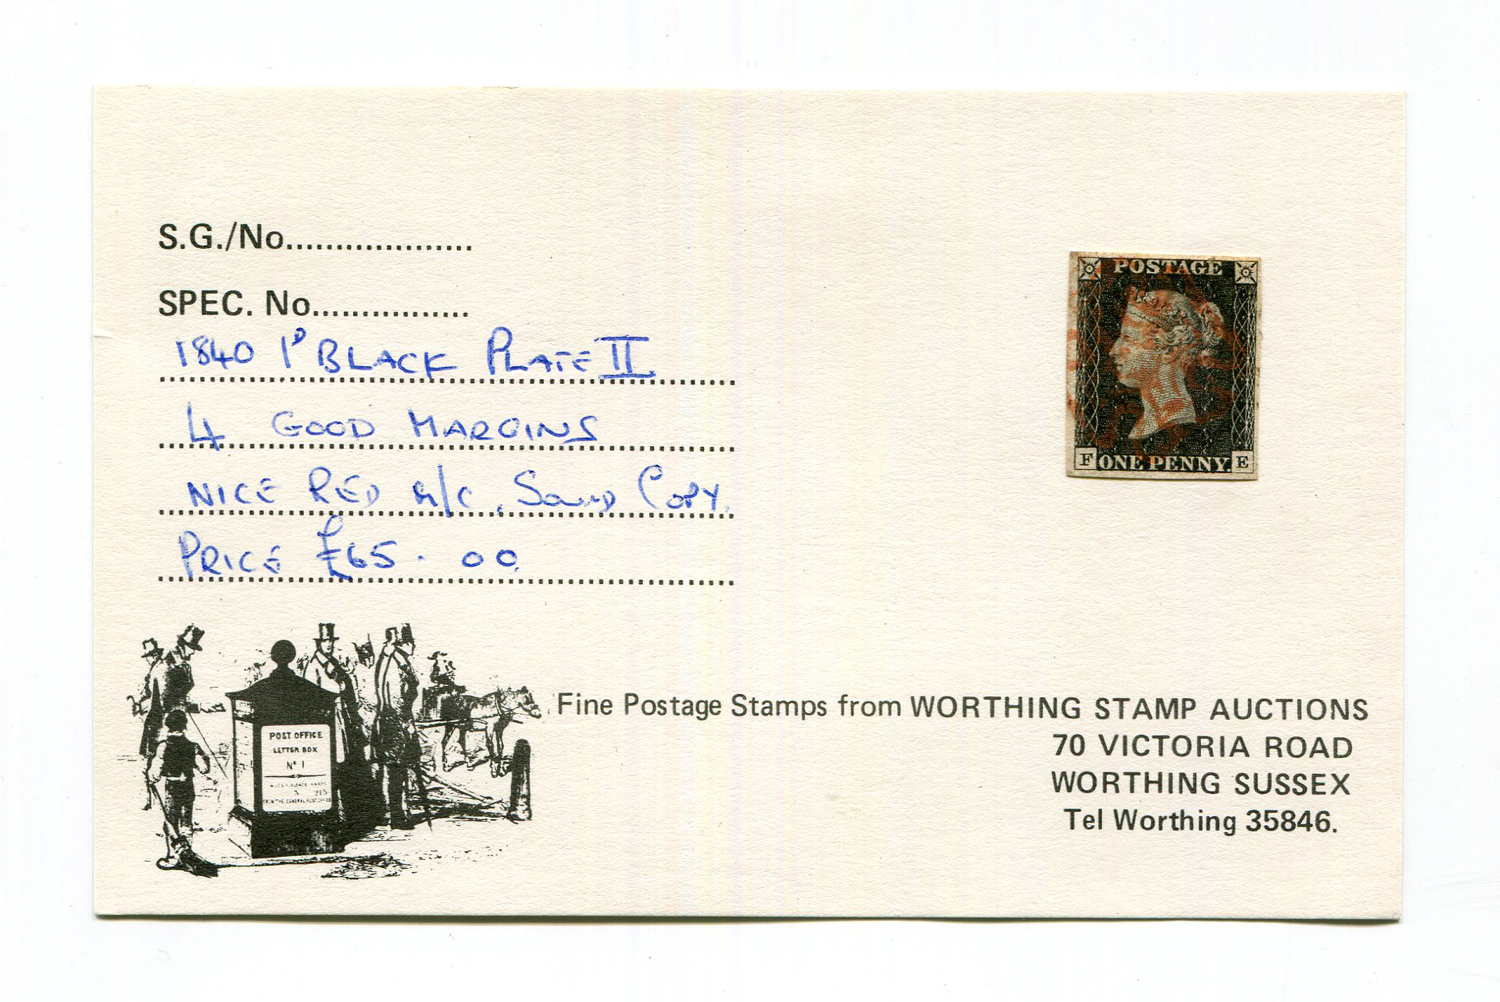 S.G./No...................
SPEC. No...............
1840 1D BLACK PLATE II
4 GOOD MARGINS
NICE RED M/C, SOUND COPY.
PRICE £65.00
POSTAGE
F ONE PENNY E
POST OFFICE
LETTER BOX
No 1
Fine Postage Stamps from WORTHING STAMP AUCTIONS
70 VICTORIA ROAD
WORTHING SUSSEX
Tel Worthing 35846.